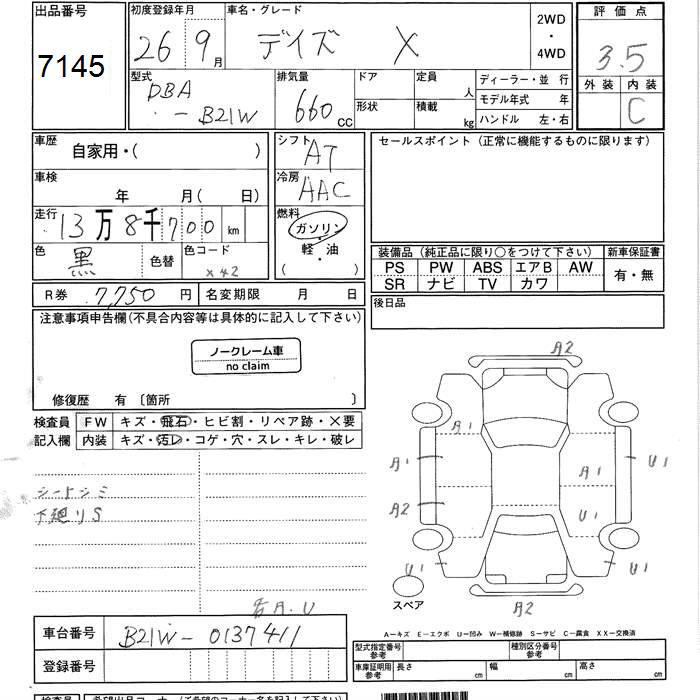 出品番号 初度登録年月 車名・グレード 2WD ・ 4WD 評価点
7145 26 9月 デイズ X 3.5
型式 排気量 ドア 定員 人 ディーラー・並 行 外装 内装
DBA - B21W 660 CC 形状 積載 kg モデル年式 年 C
ハンドル 左・右
車歴 自家用・( ) シフト AT セールスポイント (正常に機能するものに限ります)
車検 年 月( 日) 冷房 AAC
走行 13万8千700 km 燃料 ガソリン・軽・油 ( )
色 黒 色替 色コード X42 装備品 (純正品に限り○をつけて下さい) 新車保証書
PS PW ABS エアB AW 有・無
SR ナビ TV カワ
R券 7,750 円 名変期限 月 日 後日品
注意事項申告欄(不具合内容等は具体的に記入して下さい)
ノークレーム車
no claim
修復歴 有 〔箇所 〕
検査員 FW キズ・飛石・ヒビ割・リペア跡・×要
記入欄 内装 キズ・汚レ・コゲ・穴・スレ・キレ・破レ
シートシミ
下廻りS
A2
A1
A1 A1 U1
A2 U1
U1 U1
スペア A2
A−キズ E−エクボ U−凹み W−補修跡 S−サビ C−腐食 XX−交換済
車台番号 B21W-0137411
登録番号
型式指定番号 参考 種別区分番号 参考
車庫証明用 参考 長さ cm 幅 cm 高さ cm